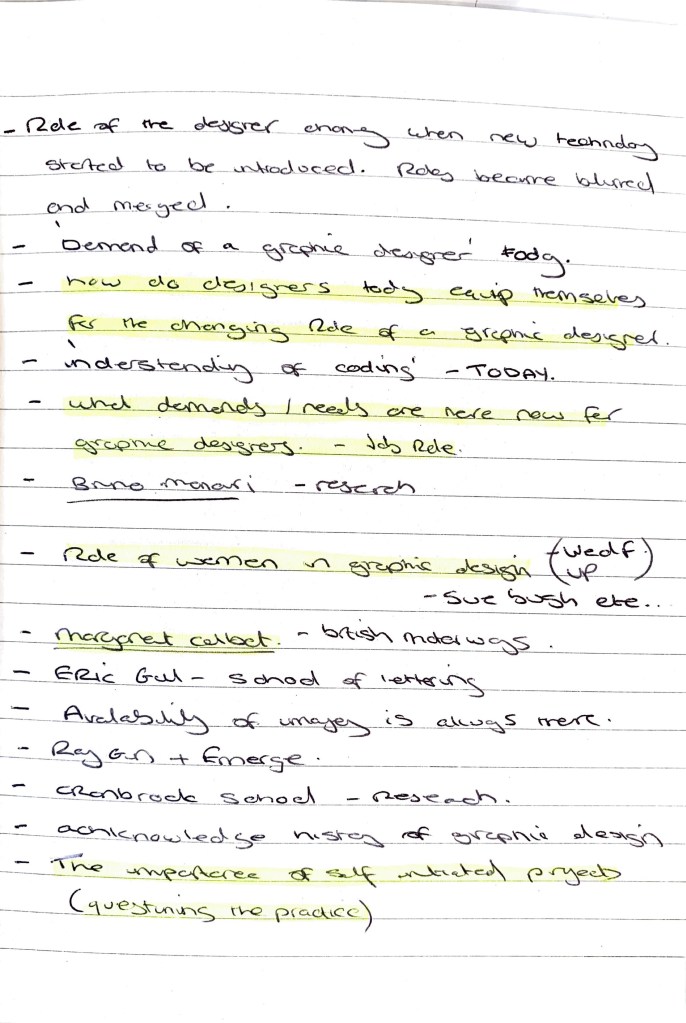 - Role of the designer changing when new technology
started to be introduced. Roles became blurred
and merged.
- 'Demand of a graphic designer' today.
- how do designers today equip themselves
for the changing Role of a graphic designer.
- 'understanding of coding' - TODAY.
- what demands / needs are here now for
graphic designers. - Job Role.
- Bruno Munari - research
- Role of women in graphic design (wedf.)
(up)
- Sue bush etc..
- Margaret Calbot. - british motorways.
- ERIC Gill - School of lettering
- Availability of images is always there.
- Ray Gun + Emerge.
- Cranbrook School - Reseach.
- acknowledge history of graphic design
- The importance of self initiated projects
(questioning the practice)